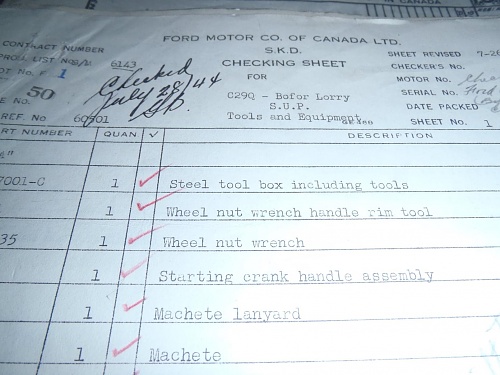 IN CANADA
FORD MOTOR CO. OF CANADA LTD.
S.K.D.
CHECKING SHEET
FOR
C29Q - Bofor Lorry
S.U.P.
Tools and Equipment
CONTRACT NUMBER
6143
1
50
REF. No 60501
Checked
July 28/44
SHEET REVISED 7-2
CHECKER'S No.
MOTOR No.
SERIAL No. Ford
DATE PACKED
SHEET No. 1
RT NUMBER QUAN. ✓ DESCRIPTION
7001-C 1 ✓ Steel tool box including tools
1 ✓ Wheel nut wrench handle rim tool
35 1 ✓ Wheel nut wrench
1 ✓ Starting crank handle assembly
1 ✓ Machete lanyard
1 ✓ Machete